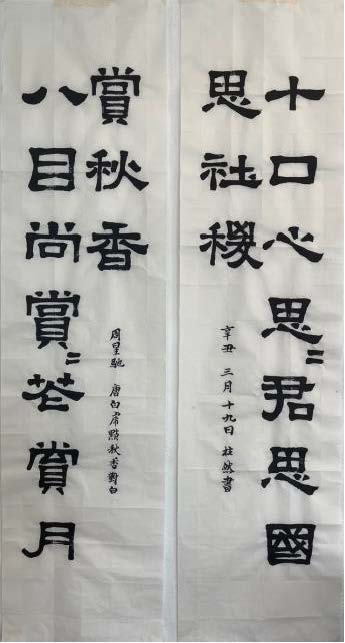 十口心思〻君思國
思社稷
辛丑 三月十九日 書
八目尚賞〻花賞月
賞秋香
周星馳 唐白虎點秋香對白